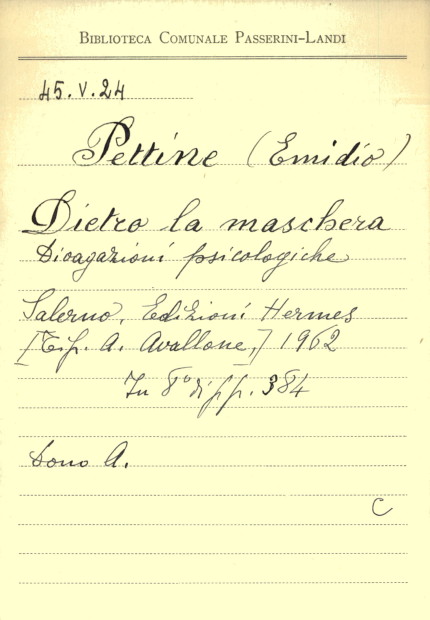 BIBLIOTECA COMUNALE PASSERINI-LANDI
45.V.24
Pettine (Emidio)
Dietro la maschera
Divagazioni psicologiche
Salerno, Edizioni Hermes
[Tip. A. Avallone,] 1962
In 8° di pp. 384
Dono A.
C